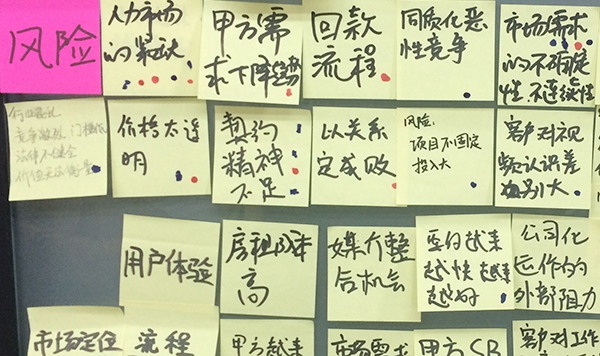 风险
人力市场
的
甲方需
求下降
回款
流程
同质化恶
性竞争
市场需求
的不确定
性.不连续性
竞争激烈 门槛低
法律不健全
价格太透
明
契约
精神
不足
以关系
定成败
风险:
项目不固定
投入大
客户对视
频认识差
别大
用户体验
房租成本
高
媒介整
合机会
要的越来
越快 越来
越好
公司化
运作的
外部阻力
市场定位
流程
甲方越来
市场需求
甲方SB
客户对工作